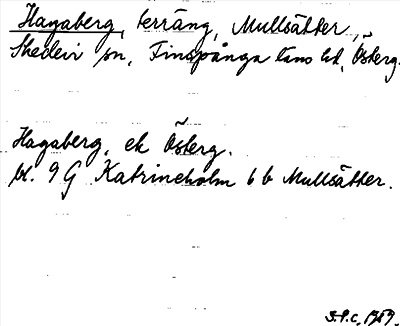 Hagaberg, terräng, Mullsätter,
Skedevi sn, Finspånga läns hd, Österg.
Hagaberg, ek Österg.
bl. 9 G Katrineholm 6 b Mullsätter.
1969.